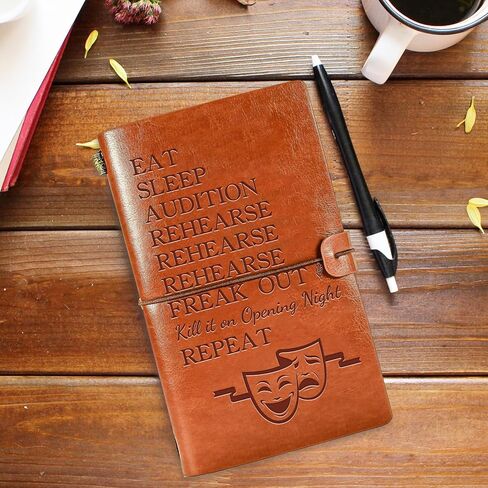 EAT
SLEEP
AUDITION
REHEARSE
REHEARSE
REHEARSE
FREAK OUT
Kill it on Opening Night
REPEAT